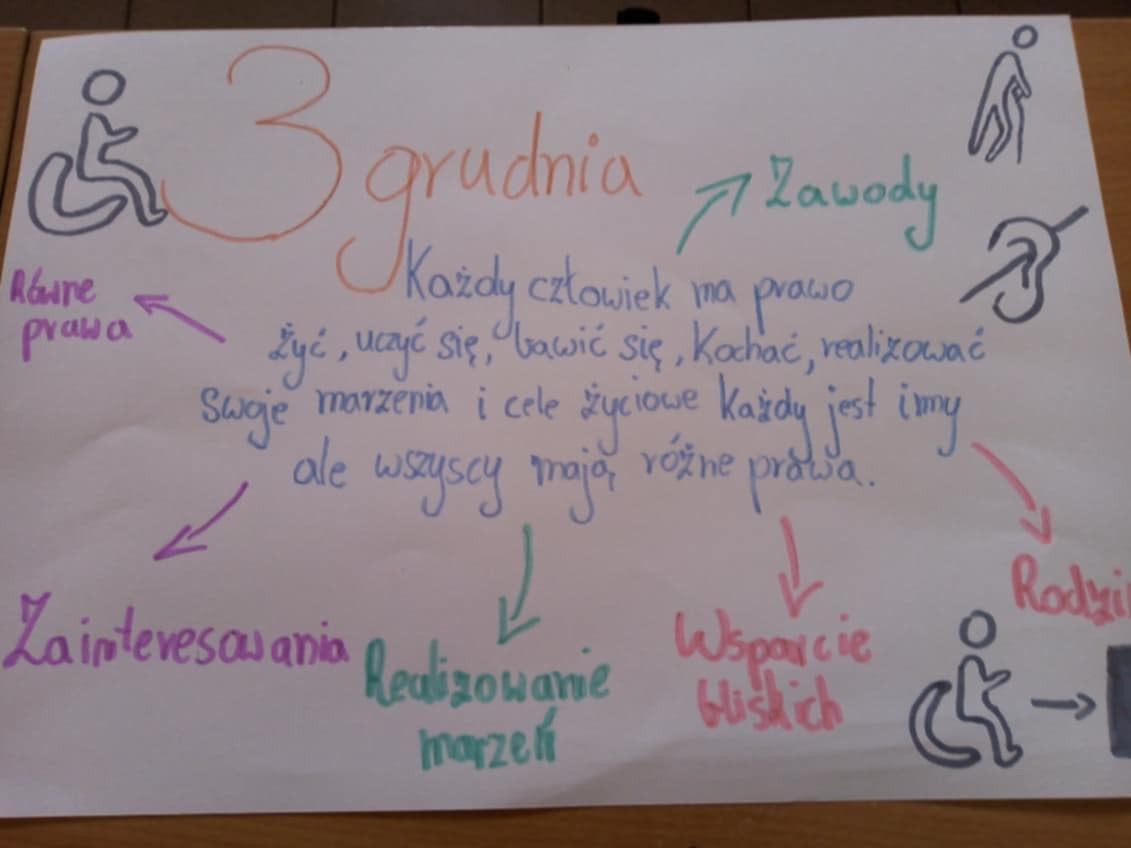 3 grudnia
Zawody
Równe
prawa
Każdy człowiek ma prawo
żyć, uczyć się, bawić się, Kochać, realizować
Swoje marzenia i cele życiowe Każdy jest inny
ale wszyscy mają różne prawa.
Zainteresowania
Realizowanie
marzeń
Wsparcie
bliskich